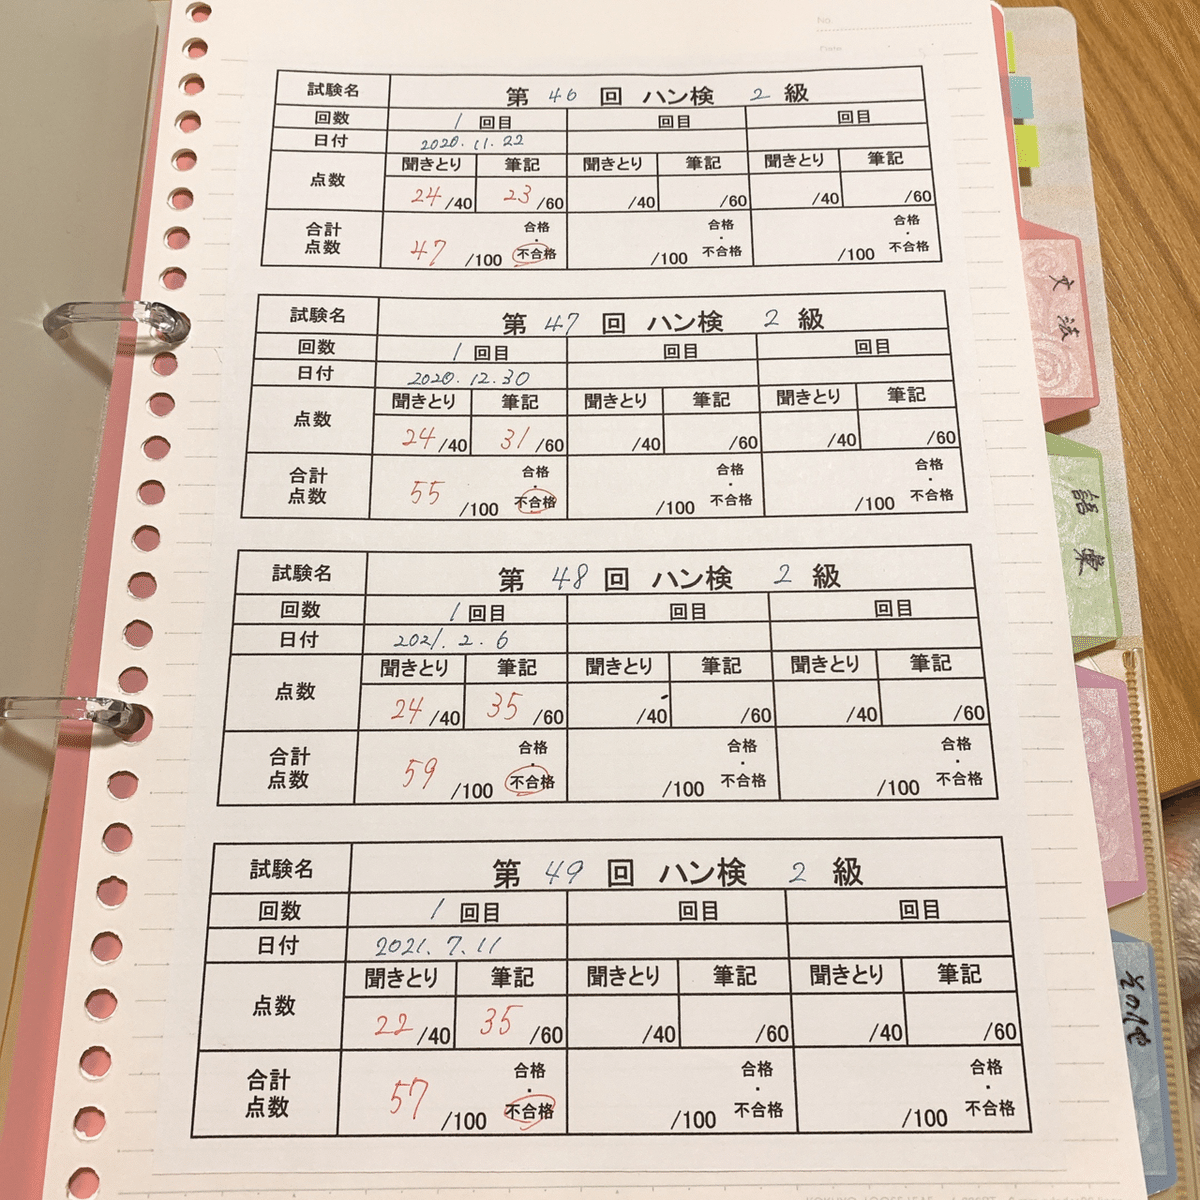 No.
Date
試験名 第 46 回 ハン検 2 級
回数 1 回目 回目 回目
日付 2020.11.22
点数 聞きとり 筆記 聞きとり 筆記 聞きとり 筆記
24/40 23/60 /40 /60 /40 /60
合計 合格 合格 合格
点数 47/100 ・不合格 /100 ・不合格 /100 ・不合格
試験名 第 47 回 ハン検 2 級
回数 1 回目 回目 回目
日付 2020.12.30
点数 聞きとり 筆記 聞きとり 筆記 聞きとり 筆記
24/40 31/60 /40 /60 /40 /60
合計 合格 合格 合格
点数 55/100 ・不合格 /100 ・不合格 /100 ・不合格
試験名 第 48 回 ハン検 2 級
回数 1 回目 回目 回目
日付 2021.2.6
点数 聞きとり 筆記 聞きとり 筆記 聞きとり 筆記
24/40 35/60 /40 /60 /40 /60
合計 合格 合格 合格
点数 59/100 ・不合格 /100 ・不合格 /100 ・不合格
試験名 第 49 回 ハン検 2 級
回数 1 回目 回目 回目
日付 2021.7.11
点数 聞きとり 筆記 聞きとり 筆記 聞きとり 筆記
22/40 35/60 /40 /60 /40 /60
合計 合格 合格 合格
点数 57/100 ・不合格 /100 ・不合格 /100 ・不合格
文法
語彙
その他